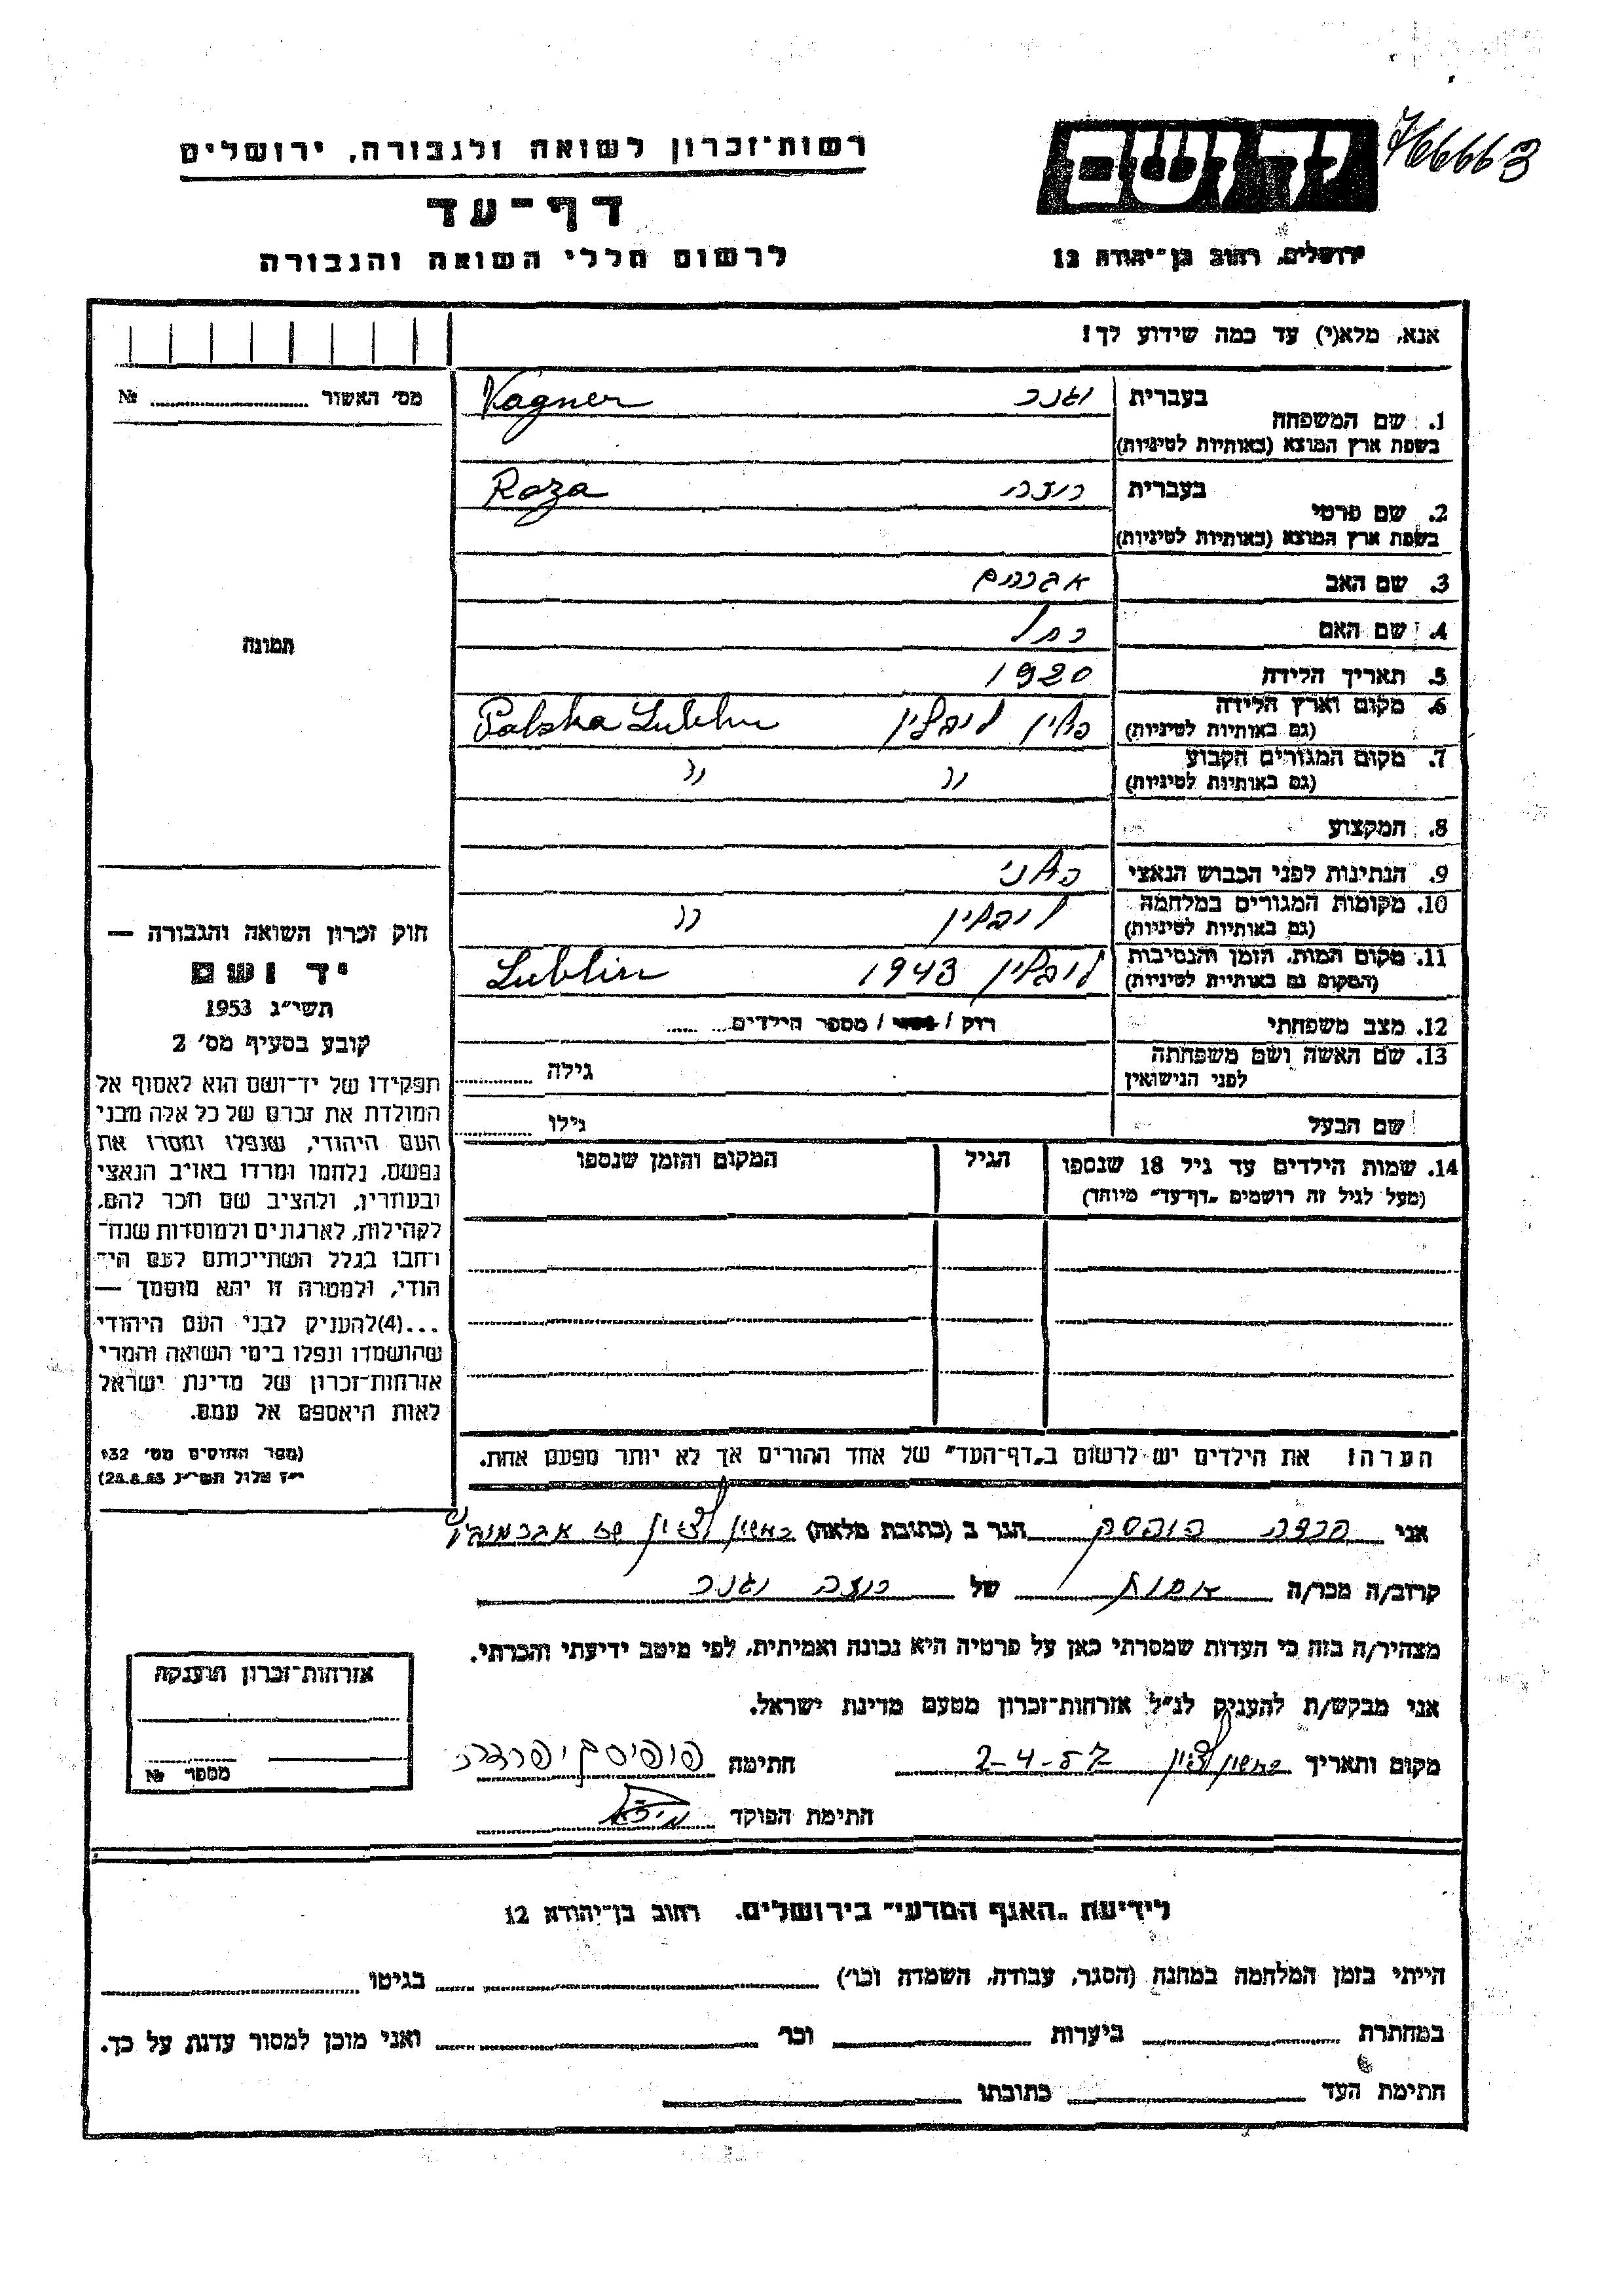 רשות־זכרון לשואה ולגבורה, ירושלים
דף־עד
לרשום חללי השואה והגבורה
יד ושם
766663
ירושלים, רחוב בן־יהודה 12
אנא, מלא(י) עד כמה שידוע לך!
מס׳ האשור № 
1. שם המשפחה
בעברית וגנר Vagner
בשפת ארץ המוצא (באותיות לטיניות)
2. שם פרטי
בעברית רוזה Roza
בשפת ארץ המוצא (באותיות לטיניות)
3. שם האב אברהם
4. שם האם רחל
5. תאריך הלידה 1920
6. מקום וארץ הלידה פולין לובלין Polska Lublin
(גם באותיות לטיניות)
7. מקום המגורים הקבוע
(גם באותיות לטיניות)
8. המקצוע
9. הנתינות לפני הכבוש הנאצי פולני
10. מקומות המגורים במלחמה לובלין
(גם באותיות לטיניות)
11. מקום המות, הזמן והנסיבות לובלין 1943 Lublin
(המקום גם באותיות לטיניות)
12. מצב משפחתי רווק / נשוי / מספר הילדים
13. שם האשה ושם משפחתה גילה
לפני הנישואין
שם הבעל גילו
14. שמות הילדים עד גיל 18 שנספו הגיל המקום והזמן שנספו
(מעל לגיל זה רושמים „דף־עד״ מיוחד)
הערה! את הילדים יש לרשום ב„דף־העד״ של אחד ההורים אך לא יותר מפעם אחת.
תמונה
חוק זכרון השואה והגבורה —
יד ושם
תשי״ג 1953
קובע בסעיף מס׳ 2
תפקידו של יד־ושם הוא לאסוף אל
המולדת את זכרם של כל אלה מבני
העם היהודי, שנפלו ומסרו את
נפשם, נלחמו ומרדו באויב הנאצי
ובעוזריו, ולהציב שם וזכר להם,
לקהילות, לארגונים ולמוסדות שנח־
רבו בגלל השתייכותם לעם הי־
הודי, ולמטרה זו יהא מוסמך —
...(4)להעניק לבני העם היהודי
שהושמדו ונפלו בימי השואה והמרי
אזרחות־זכרון של מדינת ישראל
לאות היאספם אל עמם.
(ספר החוקים מס׳ 132
י״ז אלול תשי״ג 28.8.53)
אני הגר ב (כתובת מלאה) ראשון לציון
קרוב/ה מכר/ה אחות של רוזה וגנר
מצהיר/ה בזה כי העדות שמסרתי כאן על פרטיה היא נכונה ואמיתית, לפי מיטב ידיעתי והכרתי.
אני מבקש/ת להעניק לנ״ל אזרחות־זכרון מטעם מדינת ישראל.
מקום ותאריך ראשון לציון 2-4-57 חתימה
חתימת הפוקד
אזרחות־זכרון הוענקה
מספר №
לידיעת „האגף המדעי״ בירושלים, רחוב בן־יהודה 12
הייתי בזמן המלחמה במחנה (הסגר, עבודה, השמדה וכו׳) בגיטו
במחתרת ביערות וכו׳ ואני מוכן למסור עדות על כך.
חתימת העד כתובתו